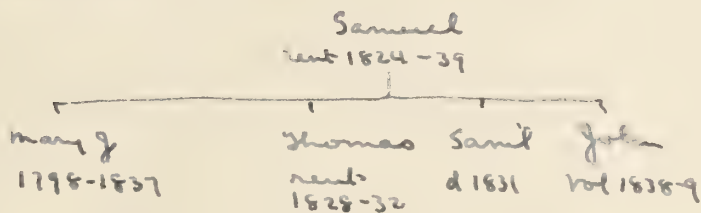 Samuel
rent 1824-39
Mary J
1798-1837
Thomas
rents
1828-32
Sam'l
d 1831
John
vol 1838-9